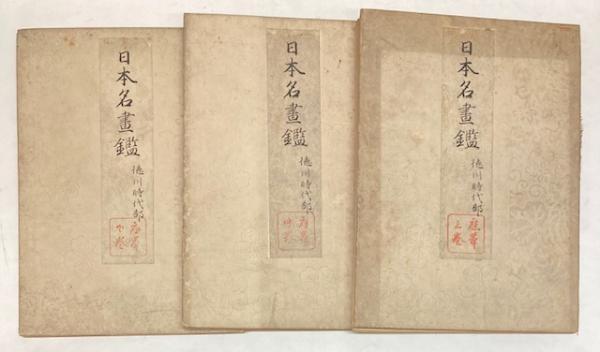 日本名畫鑑
徳川時代部
應擧
上巻
日本名畫鑑
徳川時代部
應擧
中巻
日本名畫鑑
徳川時代部
應擧
下巻